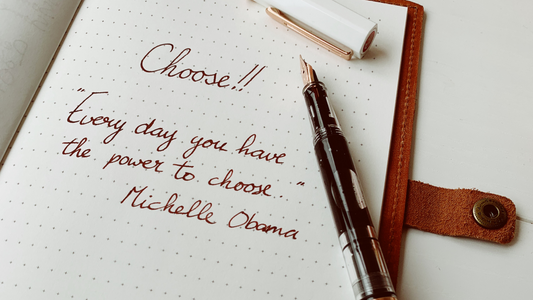 Choose!!
"Every day you have
the power to choose.."
Michelle Obama